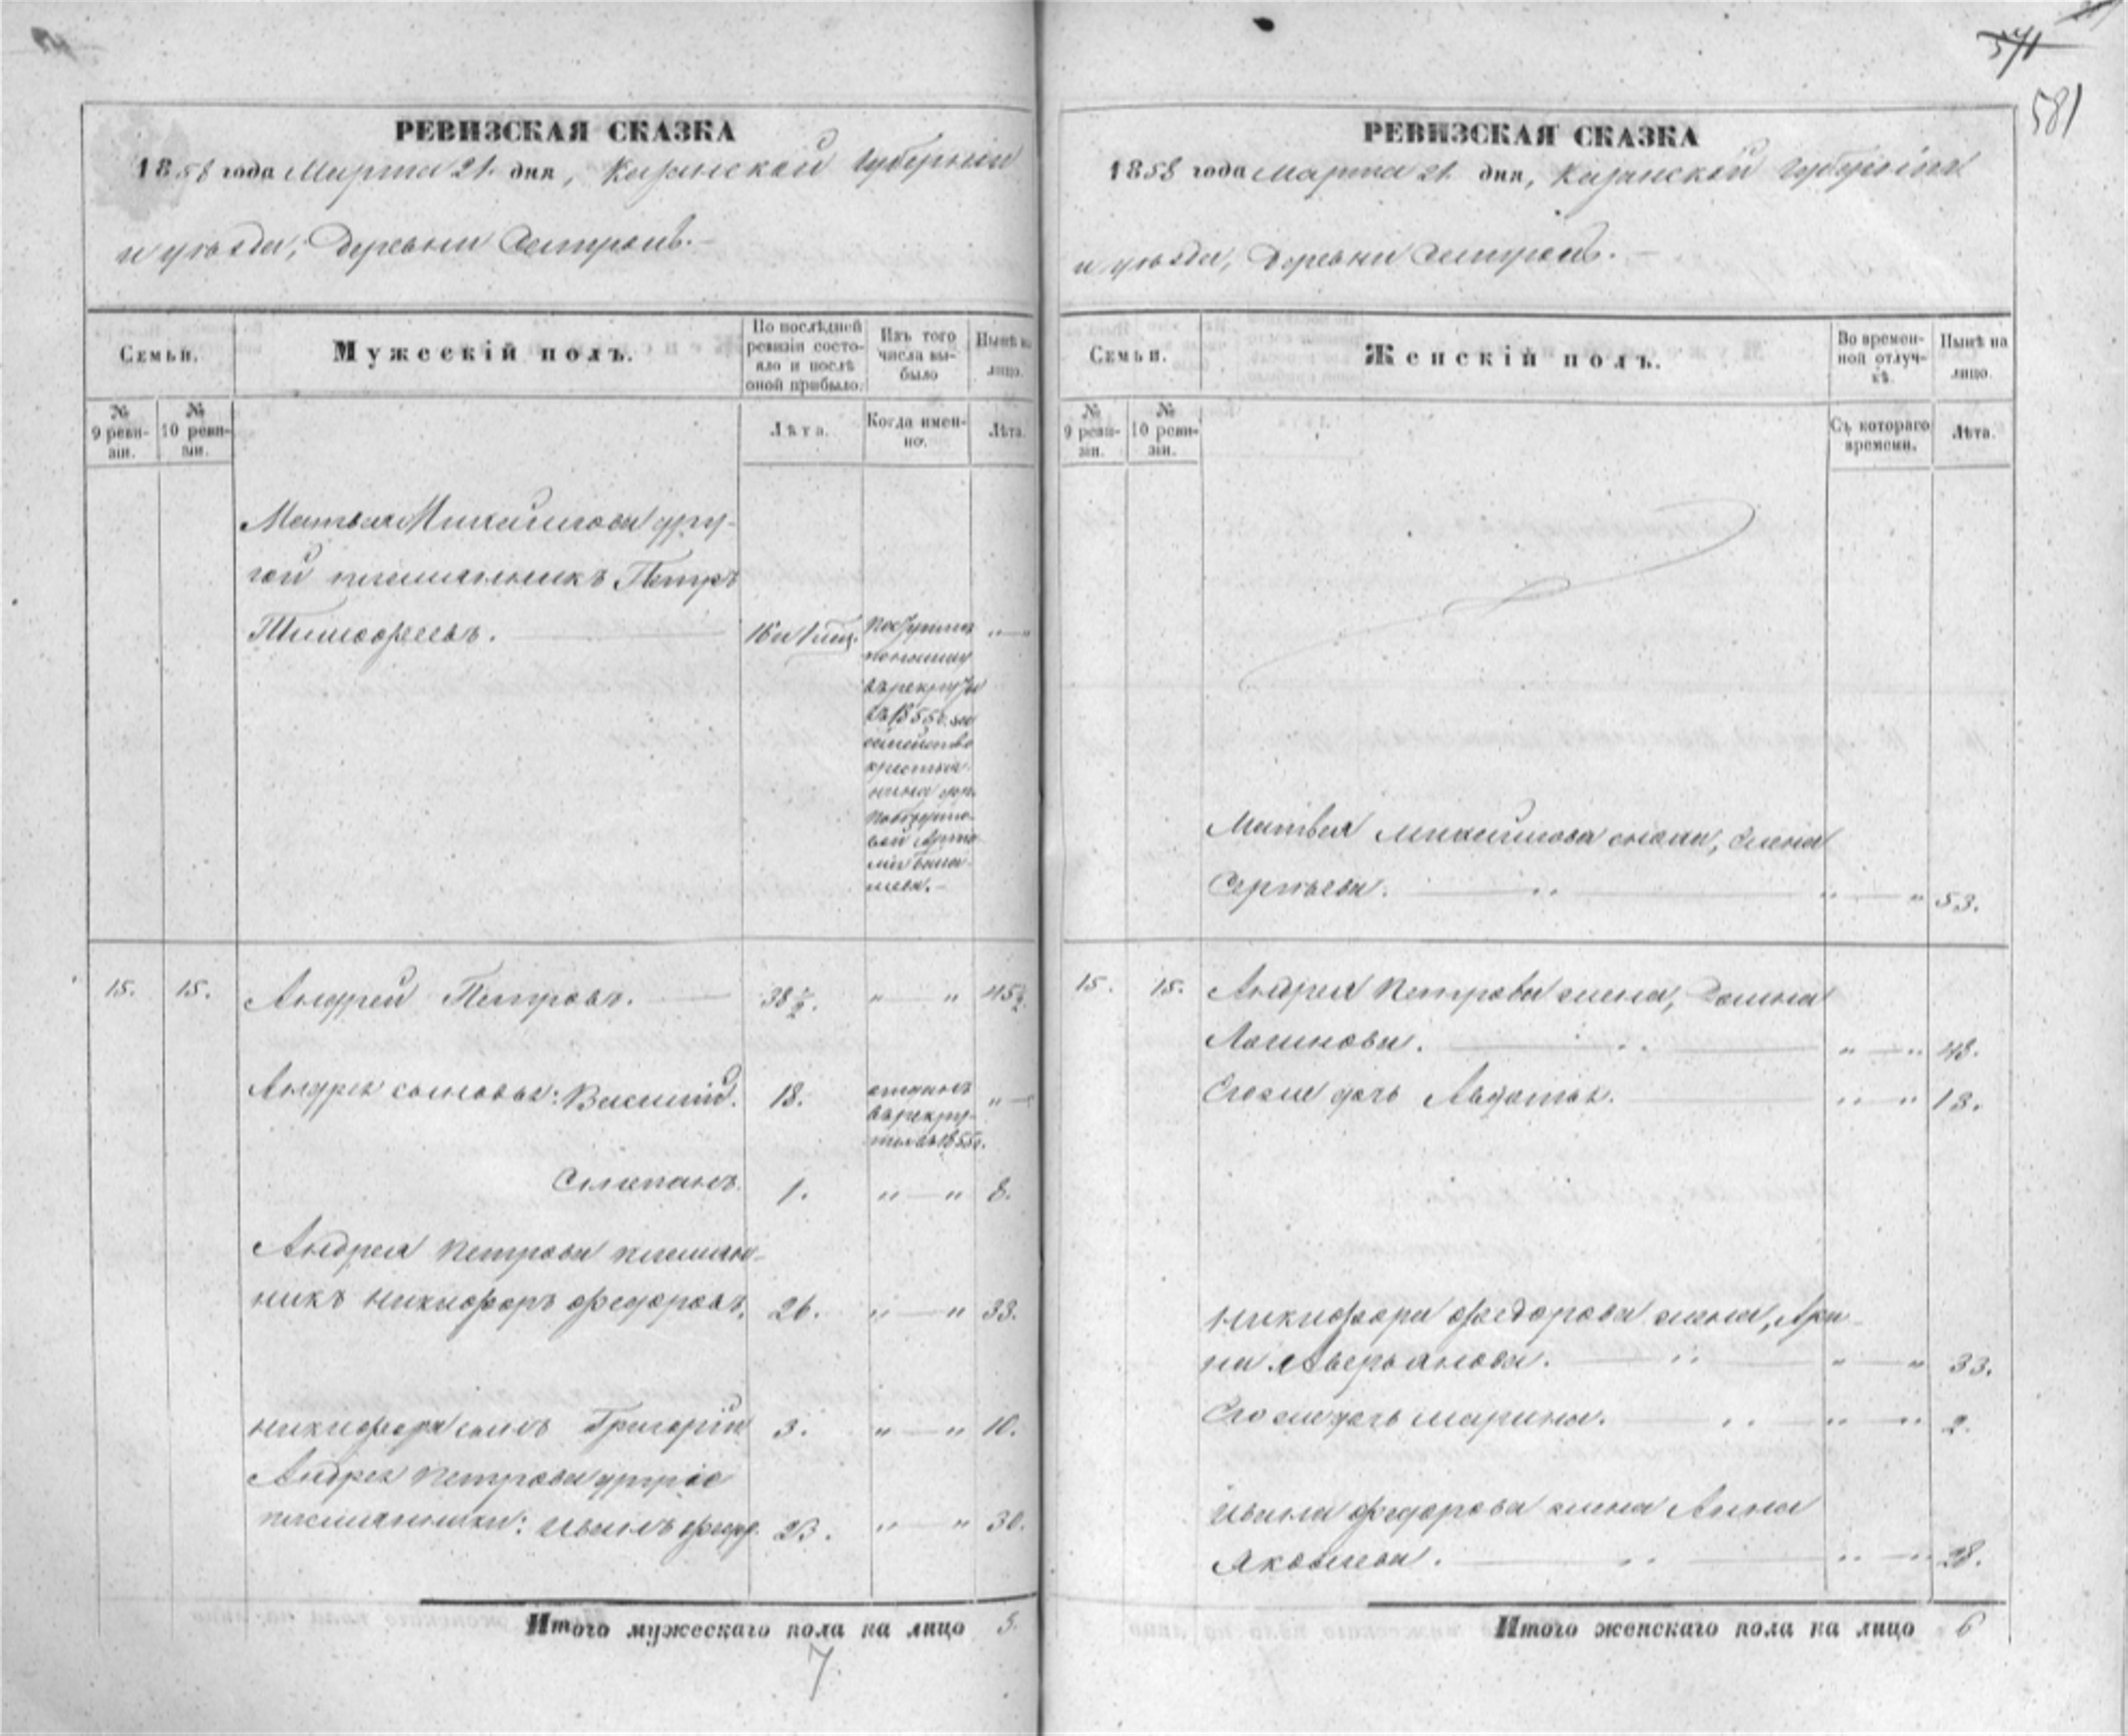 571
581
РЕВИЗСКАЯ СКАЗКА
1858 года Марта 21. дня, Казанской Губернии
и уѣзда, Деревни
Семьи.
Мужескій полъ.
По послѣдней ревизіи состояло и послѣ оной прибыло.
Изъ того числа выбыло
Нынѣ на лицо.
№ 9 ревизіи.
№ 10 ревизіи.
Лѣта.
Когда именно.
Лѣта.
Матвея Михайлова дру-
гой племянникъ Петръ
Тимофеевъ.
поступилъ
въ рекруты
въ 1855 г. за
семейство
крестья-
нина дер.
15. 15. Андрей Петровъ. 38½. " — " 45½.
Андрея сыновья: Василій. 18. отданъ " —
въ рекру-
ты въ 1855 г.
Степанъ. 1. " — " 8.
Андрея Петрова племян-
никъ Никифоръ Федоровъ. 26. " — " 33.
Никифора сынъ Григорій 3. " — " 10.
Андрея Петрова другіе
племянники: Иванъ Федор. 23. " — " 30.
Итого мужескаго пола на лицо 5.
7
РЕВИЗСКАЯ СКАЗКА
1858 года Марта 21. дня, Казанской Губерніи
и уѣзда, Деревни
Семьи.
Женскій полъ.
Во временной отлучкѣ.
Нынѣ на лицо.
№ 9 ревизіи.
№ 10 ревизіи.
Съ котораго времени.
Лѣта.
Матвея Михайлова сноха, Елена
Сергѣева. " — " 53.
15. 15. Андрея Петрова жена, Домна
Логинова. " — " 48.
Его же дочь Авдотья. " — " 13.
Никифора Федорова жена, Ари-
на Аверьянова. " — " 33.
Его же дочь Марина. " — " 2.
Ивана Федорова жена Анна
Яковлева. " — " 28.
Итого женскаго пола на лицо 6